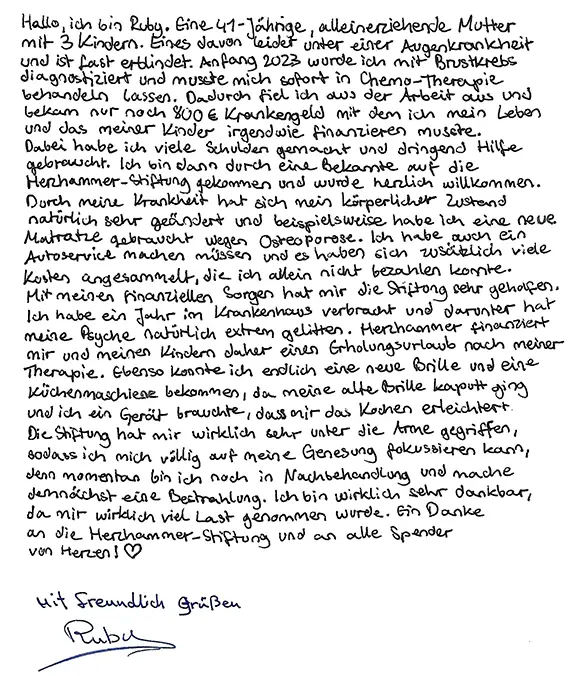 Hallo, ich bin Ruby. Eine 41-Jährige, alleinerziehende Mutter
mit 3 Kindern. Eines davon leidet unter einer Augenkrankheit
und ist fast erblindet. Anfang 2023 wurde ich mit Brustkrebs
diagnostiziert und musste mich sofort in Chemo-Therapie
behandeln lassen. Dadurch fiel ich aus der Arbeit aus und
bekam nur noch 800 € Krankengeld mit dem ich mein Leben
und das meiner Kinder irgendwie finanzieren musste.
Dabei habe ich viele Schulden gemacht und dringend Hilfe
gebraucht. Ich bin dann durch eine Bekannte auf die
Herzhammer-Stiftung gekommen und wurde herzlich willkommen.
Durch meine Krankheit hat sich mein körperlicher Zustand
natürlich sehr geändert und beispielsweise habe ich eine neue
Matratze gebraucht wegen Osteoporose. Ich habe auch ein
Autoservice machen müssen und es haben sich zusätzlich viele
Kosten angesammelt, die ich allein nicht bezahlen konnte.
Mit meinen finanziellen Sorgen hat mir die Stiftung sehr geholfen.
Ich habe ein Jahr im Krankenhaus verbracht und darunter hat
meine Psyche natürlich extrem gelitten. Herzhammer finanziert
mir und meinen Kindern daher einen Erholungsurlaub nach meiner
Therapie. Ebenso konnte ich endlich eine neue Brille und eine
Küchenmaschiene bekommen, da meine alte Brille kaputt ging
und ich ein Gerät brauchte, dass mir das Kochen erleichtert.
Die Stiftung hat mir wirklich sehr unter die Arme gegriffen,
sodass ich mich völlig auf meine Genesung fokussieren kann,
denn momentan bin ich noch in Nachbehandlung und mache
demnächst eine Bestrahlung. Ich bin wirklich sehr dankbar,
da mir wirklich viel Last genommen wurde. Ein Danke
an die Herzhammer-Stiftung und an alle Spender
von Herzen! ♡
Mit freundlich Grüßen
Ruby